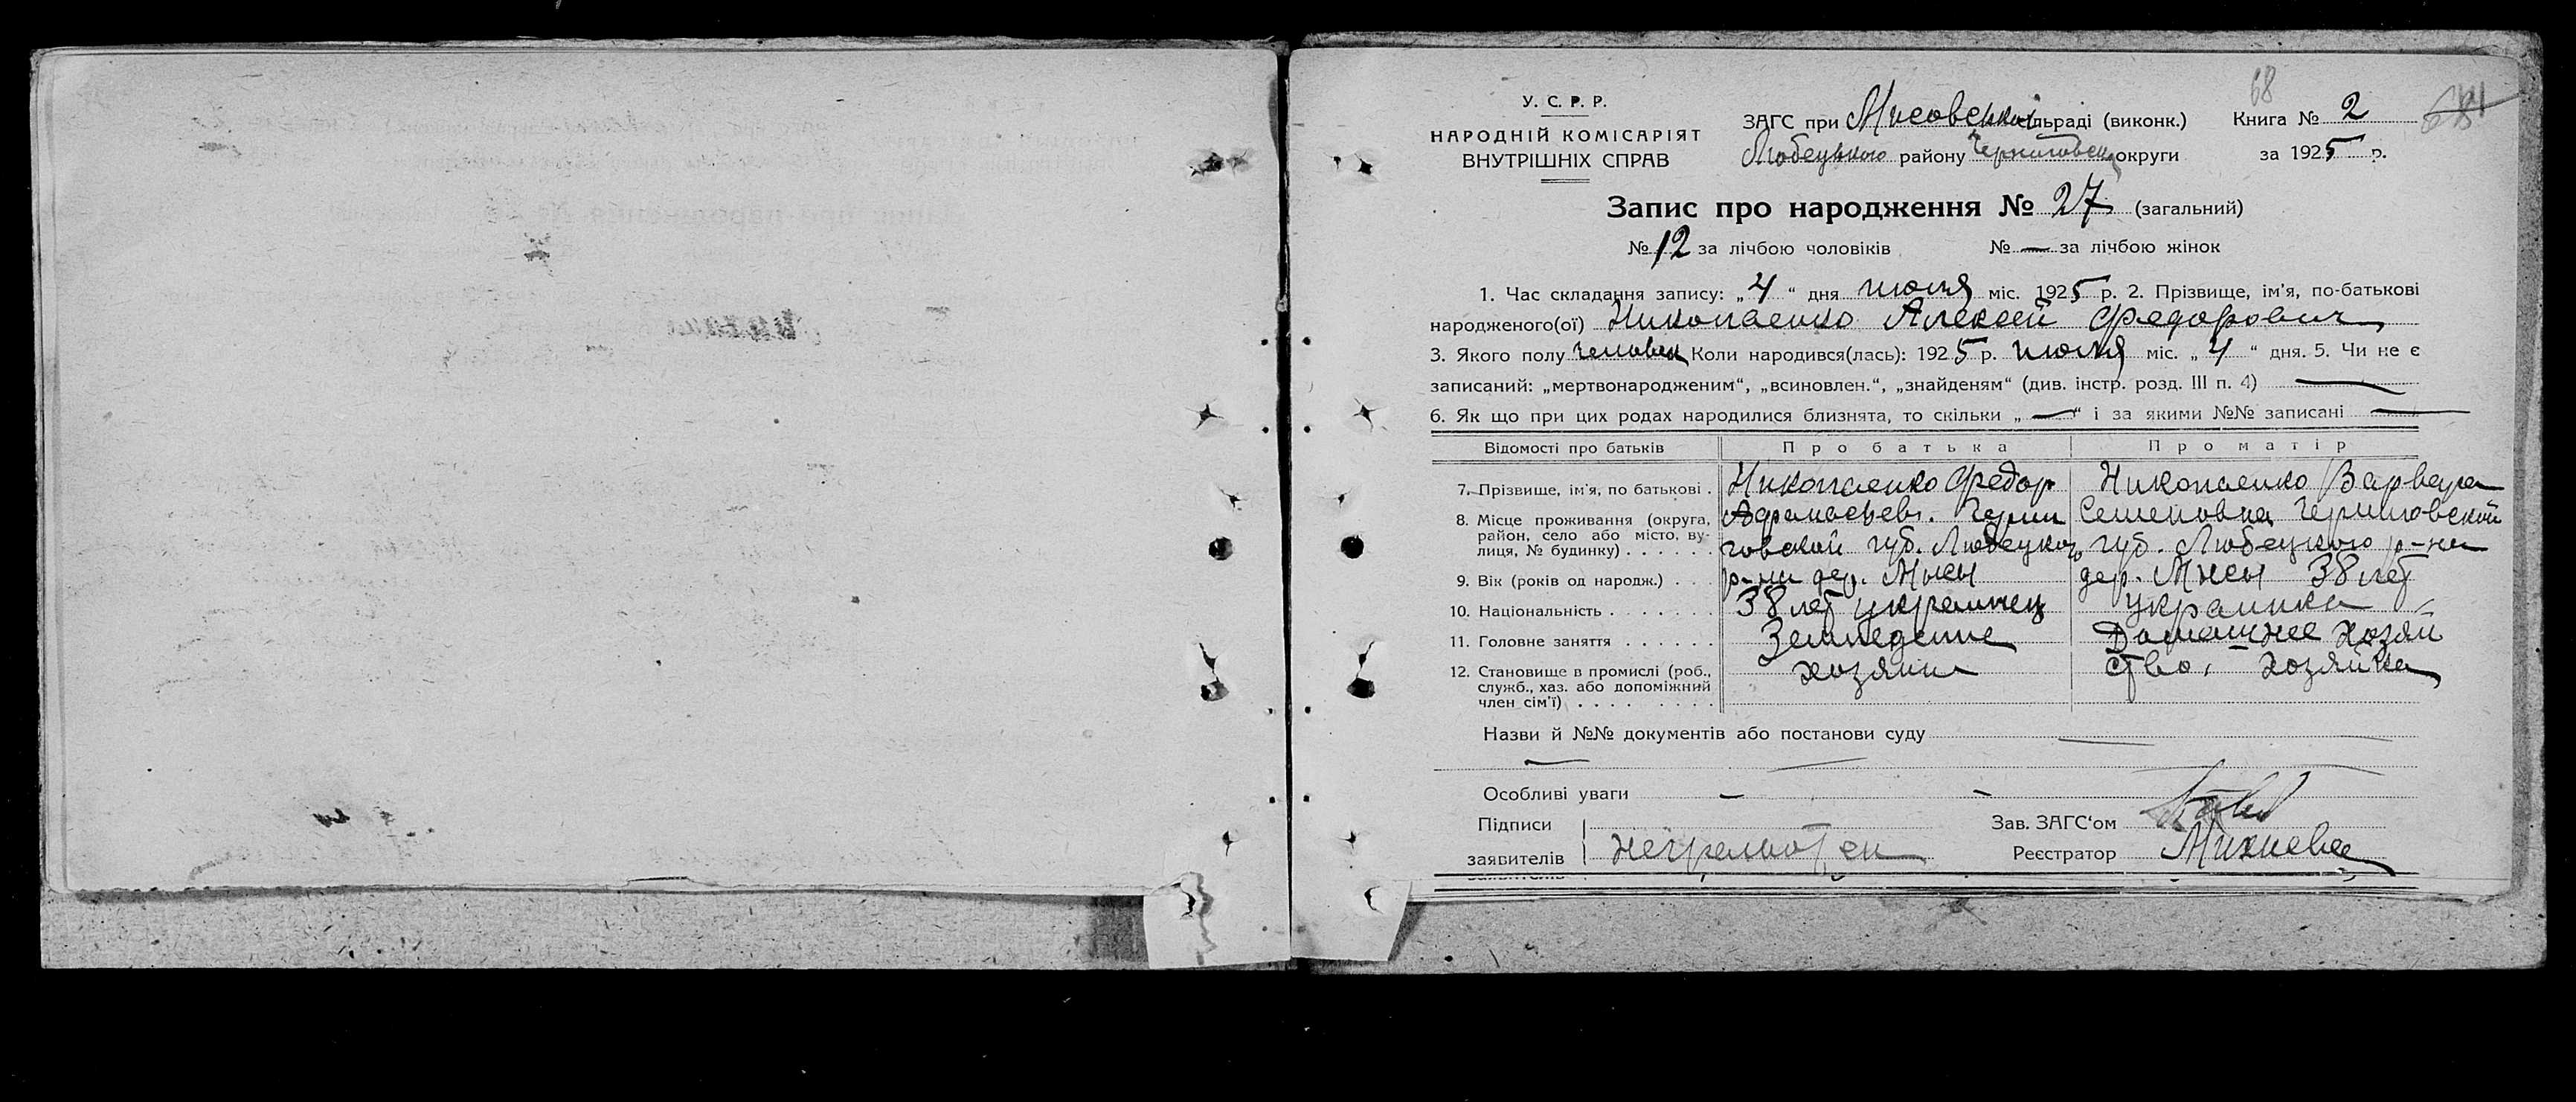 68
У. С. Р. Р.
НАРОДНІЙ КОМІСАРІЯТ
ВНУТРІШНІХ СПРАВ
ЗАГС при Мисовській сільраді (виконк.) Книга № 2
Любецького району Черниговск округи за 1925 р.
Запис про народження № 27 (загальний)
№ 12 за лічбою чоловіків № — за лічбою жінок
1. Час складання запису: „4“ дня июля міс. 1925 р. 2. Прізвище, ім'я, по-батькові
народженого(ої) Николаенко Алексей Федорович
3. Якого полу человек Коли народився(лась): 1925 р. июля міс. „4“ дня. 5. Чи не є
записаний: „мертвонародженим“, „всиновлен.“, „знайденям“ (див. інстр. розд. III п. 4) —
6. Як що при цих родах народилися близнята, то скільки „—“ і за якими №№ записані —
Відомості про батьків Про батька Про матір
7. Прізвище, ім'я, по батькові . Николаенко Федор Николаенко Варвара
8. Місце проживання (округа, район, село або місто, вулиця, № будинку) . . . . . . Афанасьев. Черни Семеновна Черниговской
говской губ. Любецкого губ. Любецкого р-на
9. Вік (років од народж.) . . . р-на дер. Мысы дер. Мысы 38 лет
10. Національність . . . . . . . 38 лет украинец украинка
11. Головне заняття . . . . . . Земледелие Домашнее хозяй
12. Становище в промислі (роб., служб., хаз. або допоміжний член сім'ї) . . . . . . . . хозяин ство. — хозяйка
Назви й №№ документів або постанови суду —
Особливі уваги — —
Підписи Зав. ЗАГС'ом
заявителів неграмотен Реєстратор Михнева